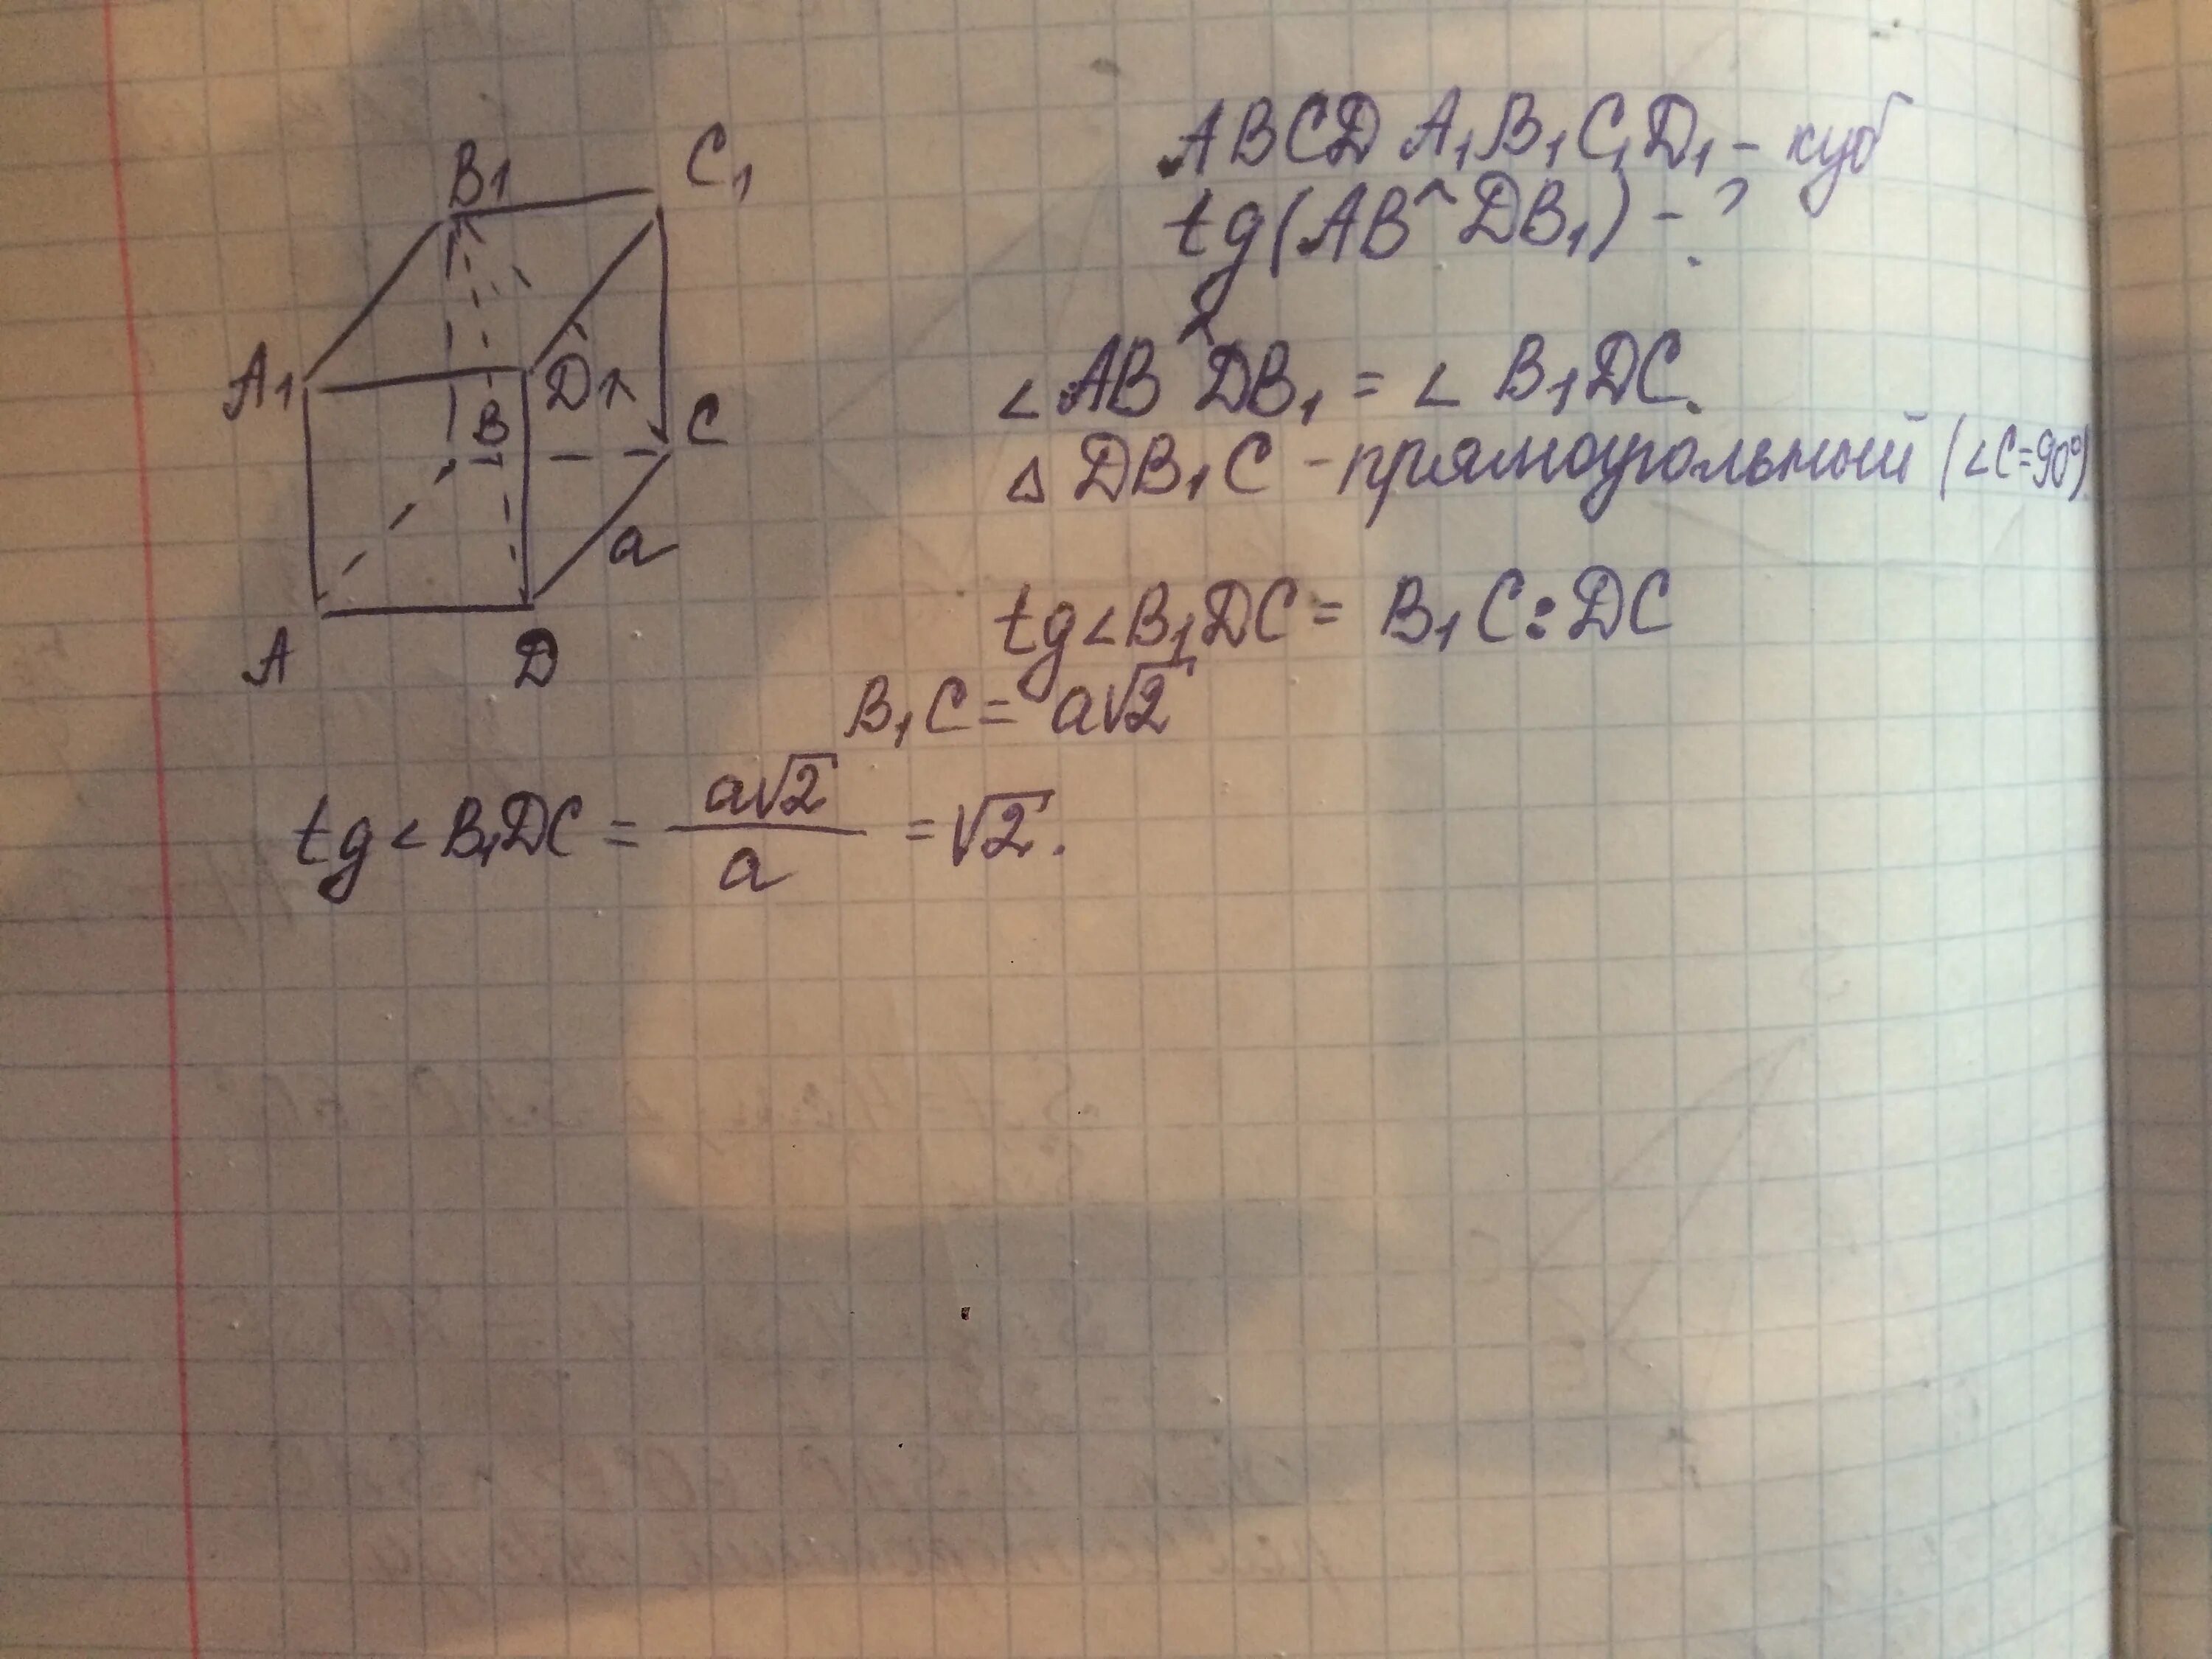 B₁ C₁
A₁ D₁
B C
a
A D
ABCD A₁B₁C₁D₁ - куб
tg(AB^DB₁) - ?
∠AB^DB₁ = ∠ B₁DC.
△ DB₁C - прямоугольный (∠C=90°)
tg∠B₁DC = B₁C : DC
B₁C = a√2
tg∠B₁DC = a√2 / a = √2.